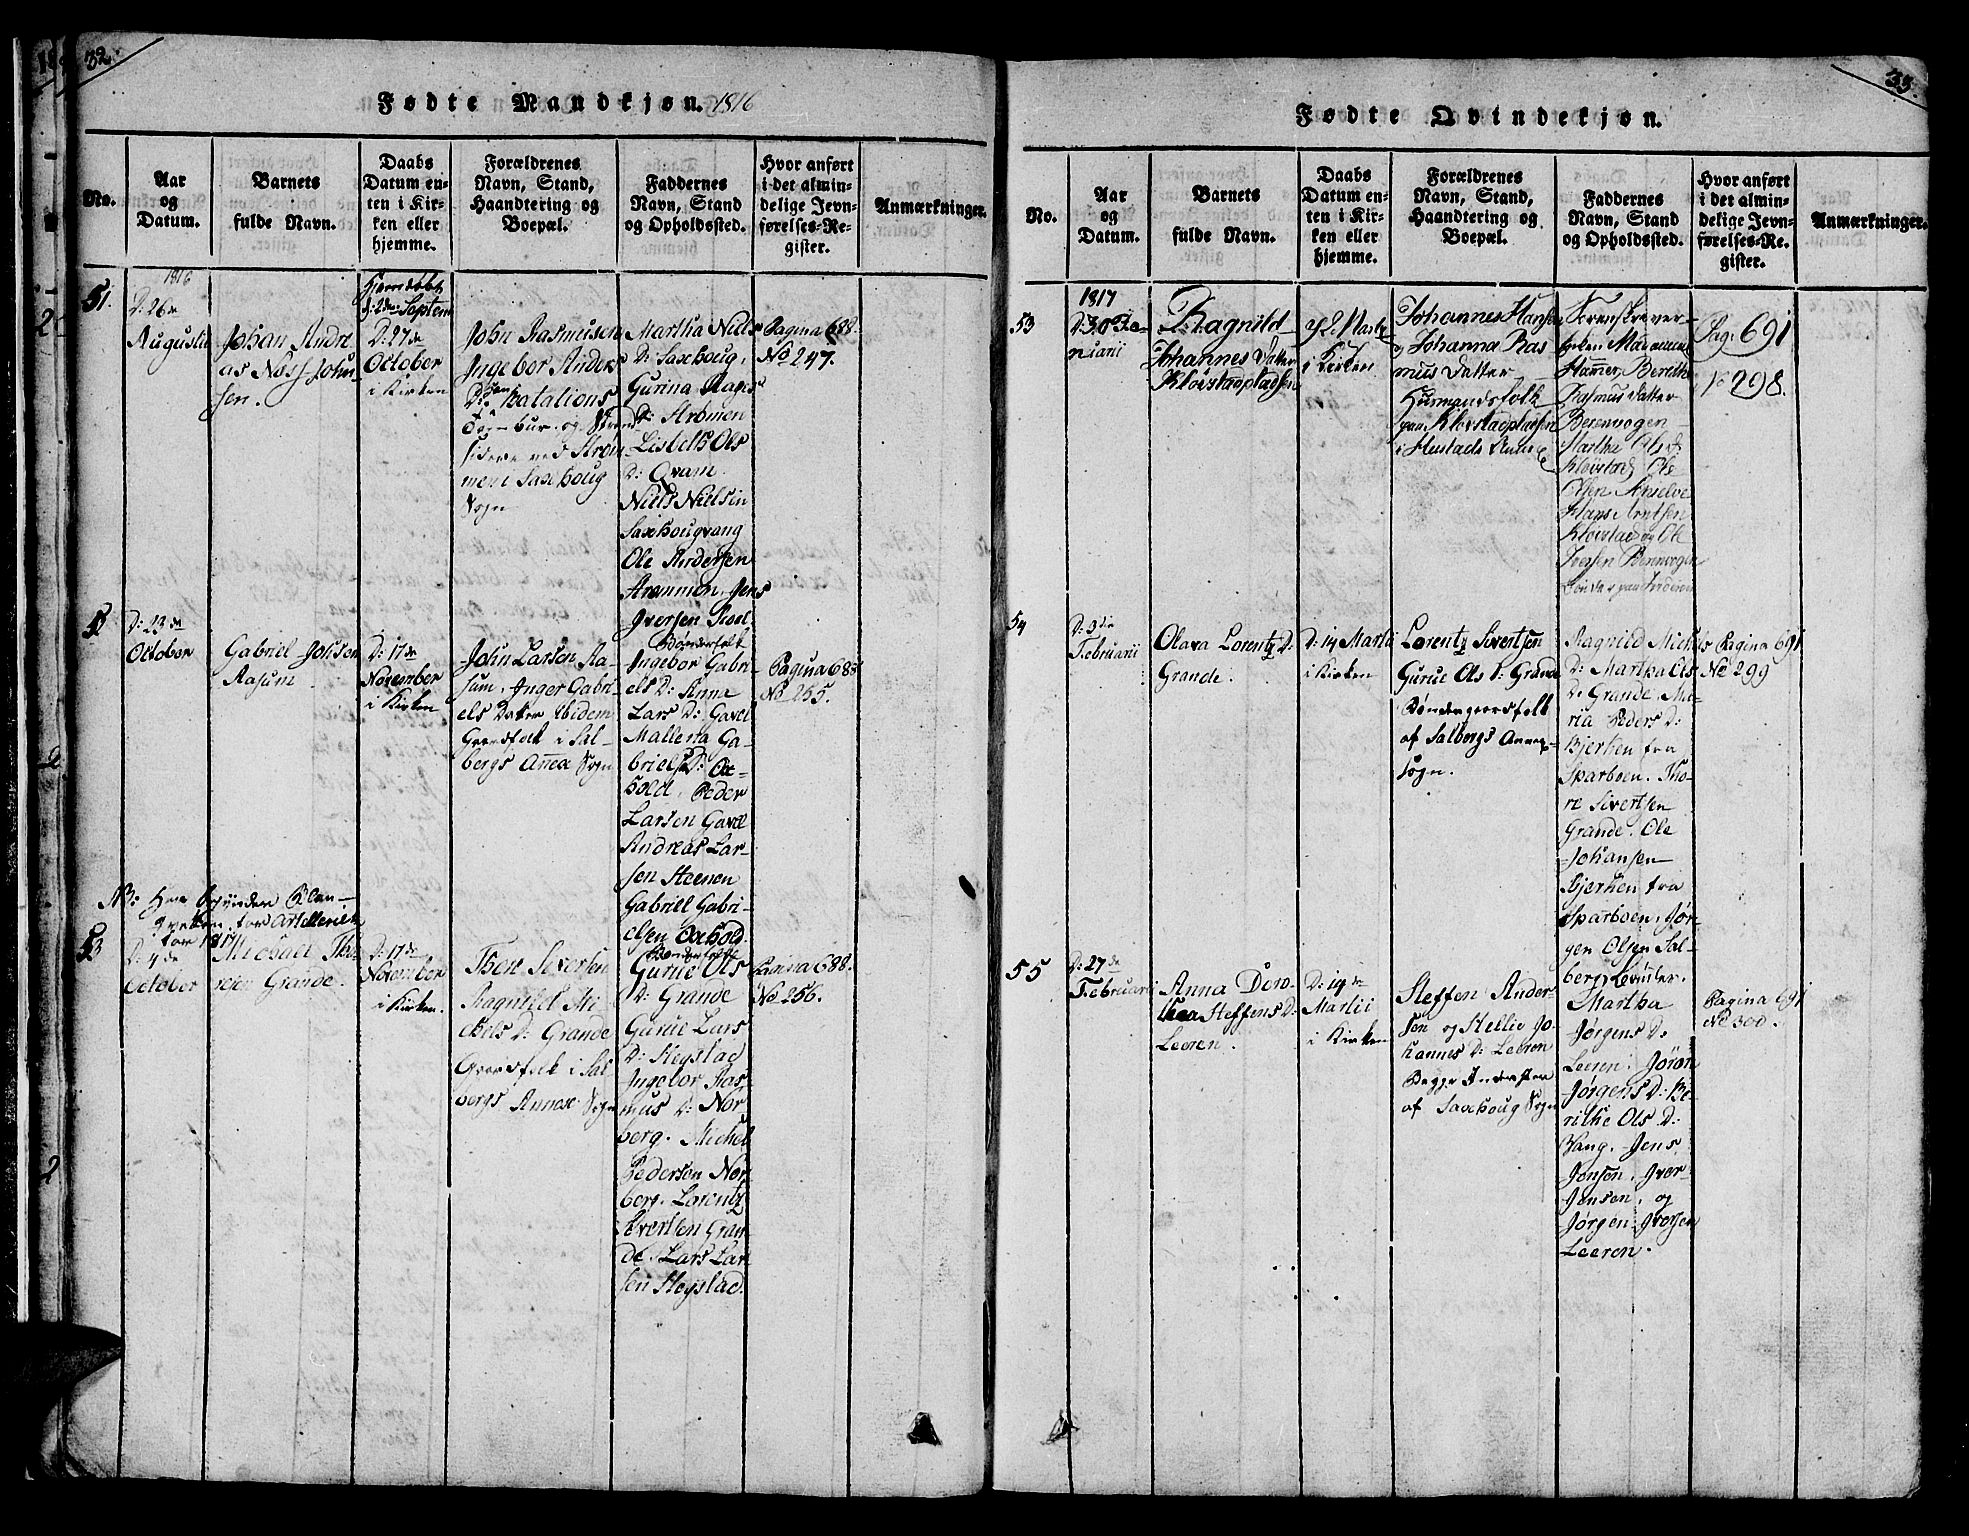 32.
Fødte Mandkjøn. 1816
No.
Aar
og
Datum.
Barnets
fulde Navn.
Daabs
Datum en-
ten i Kir-
ken eller
hjemme.
Forældrenes
Navn, Stand,
Haandtering og
Boepæl.
Faddernes
Navn, Stand
og Opholdssted.
Hvor anført
i det almin-
delige Jevn-
førelses-Re-
gister.
Anmærkninger.
51.
1816
D: 26de
Augustii
Johan Andre
as Noss John-
sen.
Hjemdøbt
d: 2den Septem
D: 27de
October
i Kirken
John Rasmusen
Ingebor Anders
D:
Batalions
Tambur og Strand
sidere ved Strøm-
men i Saxhoug
Sogn
Martha Niels
D: Saxhoug,
Gurina Aages
D: Strømen
Lisbeth Ols
D: Qvam.
Niels Nielsin
Saxhougvang
Ole Andersen
Strømmen, Jens
Iversen Roel
Bønderfolk
Pagina 688.
No 247.
52
D: 23de
October
Gabriel Johsen
Aasum
D: 17de
November
i Kirken
John Larsen Aa-
sum, Inger Gabri-
els Datter Ibidem
Gaardfolk i Sal-
bergs Annex Sogn
Ingebor Gabri-
els D: Anne
Lars D: Gavel
Mallena Ga-
briels D: Ox-
hold, Peder
Larsen Gavel
Andreas Lar-
sen Steenen
Gabriel Gabri-
elsen Oxhold.
Bønderfolk
Pagina 688
No 255.
NB: Her begynder Rken-
for Artelleriet
for 1817
53
D: 4de
October
Michael Tho-
resen Grande.
D: 17de
November
i Kirken.
Thore Seversen
Ragnild Mi-
chels D: Grande
Gaardfolk i Sal-
bergs Annex Sogn
Gurue Ols
D: Grande
Gurue Lars
D: Hegstad
Ingebor Ras-
mus D: Nor-
berg. Michel
Pederson Nor-
berg. Lorentz
Sivertsen Gran-
de. Lars Lar-
sen Hegstad.
Pagina 688.
No 256.
33.
Fødte Qvindekjøn.
No.
Aar
og
Datum.
Barnets
fulde Navn.
Daabs
Datum en-
ten i Kir-
ken eller
hjemme.
Forældrenes
Navn, Stand,
Haandtering og
Boepæl.
Faddernes
Navn, Stand
og Opholdssted.
Hvor anført
i det almin-
delige Jevn-
førelses-Re-
gister.
Anmærkninger.
53
1817
D: 30 Ja-
nuarii
Ragnild
Johannes Datter
Kløvstadpladsen
2 Marts
i Kirken
Johannes Hansen
og Johanna Ras
mus Datter
Husmandsfolk
paa Kløvstadpladsen
i Hustads Annex
Sorenskriver-
Madame
Hammer, Berithe
Rasmus Datter
Berenvogen
Marthe Ols D
Kløvstad Ole
Olsen
Hans Arntsen
Kløvstad og Ole
Iversen Berenvogen
Bønder paa Inderøen
Pag: 691
No 298.
54
D: 3die
Februarii
Olava Lorentz D:
Grande.
D: 14 Martii
i Kirken
Lorentz Sivertsen
Gurue Ols D: Grande
Bønder gaardfolk
af Salbergs Annex-
Sogn.
Ragnild Michels
D: Martha Ols
D: Grande, Ma-
ria Peders D:
Bjerken fra
Sparboen. Tho-
re Sivertsen
Grande. Ole
Johansen
Bjerken fra
Sparboen, Jør-
gen Olsen Sal-
berg, Bønder.
Pagina 691
No 299
55
D: 27de
Februarii
Anna Doro-
thea Steffens D:
Leeren.
D: 14de
Martii
i Kirken
Steffen Ander-
sen og Hellie Jo-
hannes D: Leeren
Begge Inderster
af Saxhoug Sogn
Martha
Jørgens D:
Leeren. Joran
Jørgens D: Be-
rithe Ols D:
Vang. Jens
Jonsen. Iver
Jensen, og
Jørgen Iversen
Leeren.
Pagina 691
No 300.